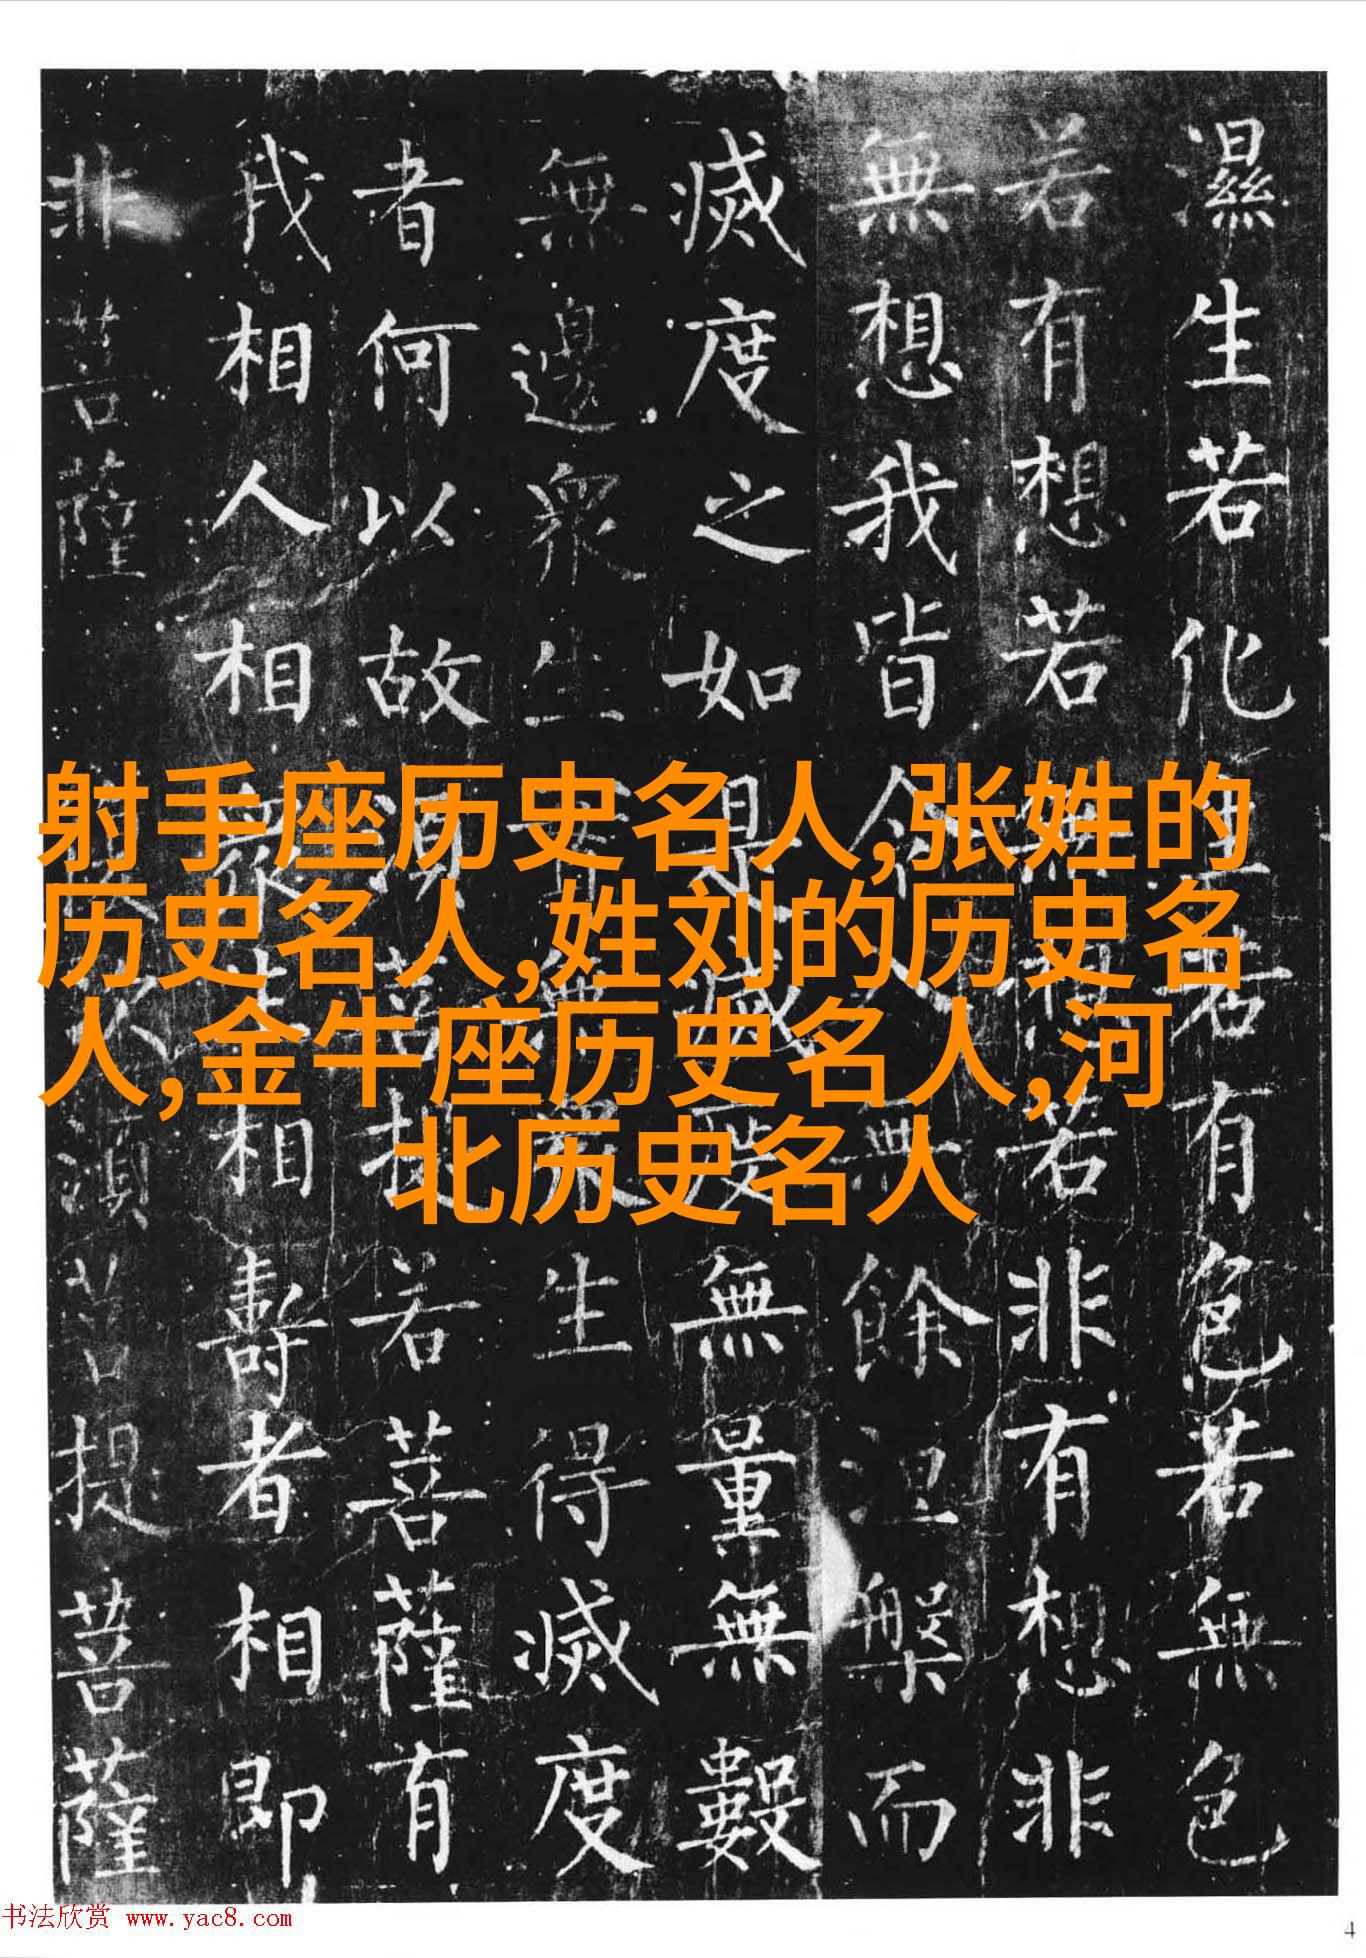 濕生若化生若有色若無色
若有想若無想若非有想非
無想我皆令入無餘涅槃而
滅度之如是滅度無量無數
無邊眾生實無眾生得滅度
者何以故須菩提若菩薩有
我相人相眾生相壽者相即
非菩薩 復次須菩提菩薩
射手座历史名人,张姓的
历史名人,姓刘的历史名
人,金牛座历史名人,河
北历史名人
书法欣赏 www.yac8.com
4